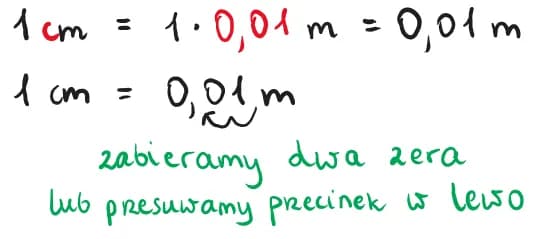 1 cm = 1 · 0,01 m = 0,01 m
1 cm = 0,01 m
zabieramy dwa zera
lub przesuwamy przecinek w lewo